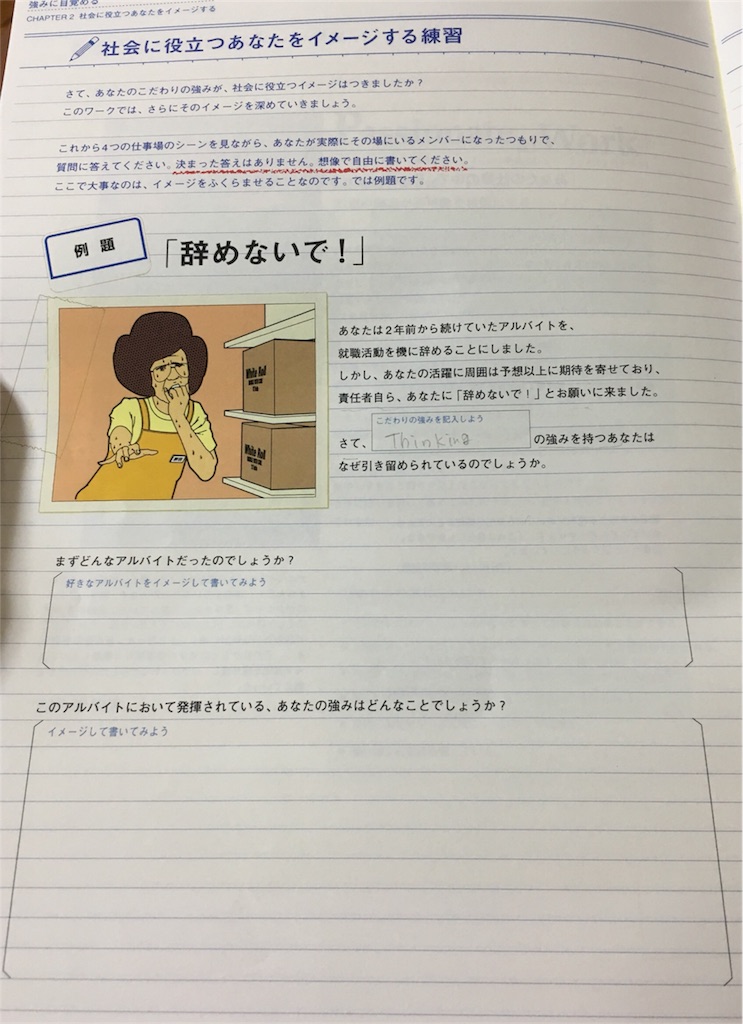 強みに目覚める
CHAPTER 2 社会に役立つあなたをイメージする
社会に役立つあなたをイメージする練習
さて、あなたのこだわりの強みが、社会に役立つイメージはつきましたか？
このワークでは、さらにそのイメージを深めていきましょう。
これから4つの仕事場のシーンを見ながら、あなたが実際にその場にいるメンバーになったつもりで、
質問に答えてください。決まった答えはありません。想像で自由に書いてください。
ここで大事なのは、イメージをふくらませることなのです。では例題です。
例題
「辞めないで！」
White Rod
White Rod
あなたは2年前から続けていたアルバイトを、
就職活動を機に辞めることにしました。
しかし、あなたの活躍に周囲は予想以上に期待を寄せており、
責任者自ら、あなたに「辞めないで！」とお願いに来ました。
こだわりの強みを記入しよう
さて、 Thinking の強みを持つあなたは
なぜ引き留められているのでしょうか。
まずどんなアルバイトだったのでしょうか？
好きなアルバイトをイメージして書いてみよう
このアルバイトにおいて発揮されている、あなたの強みはどんなことでしょうか？
イメージして書いてみよう